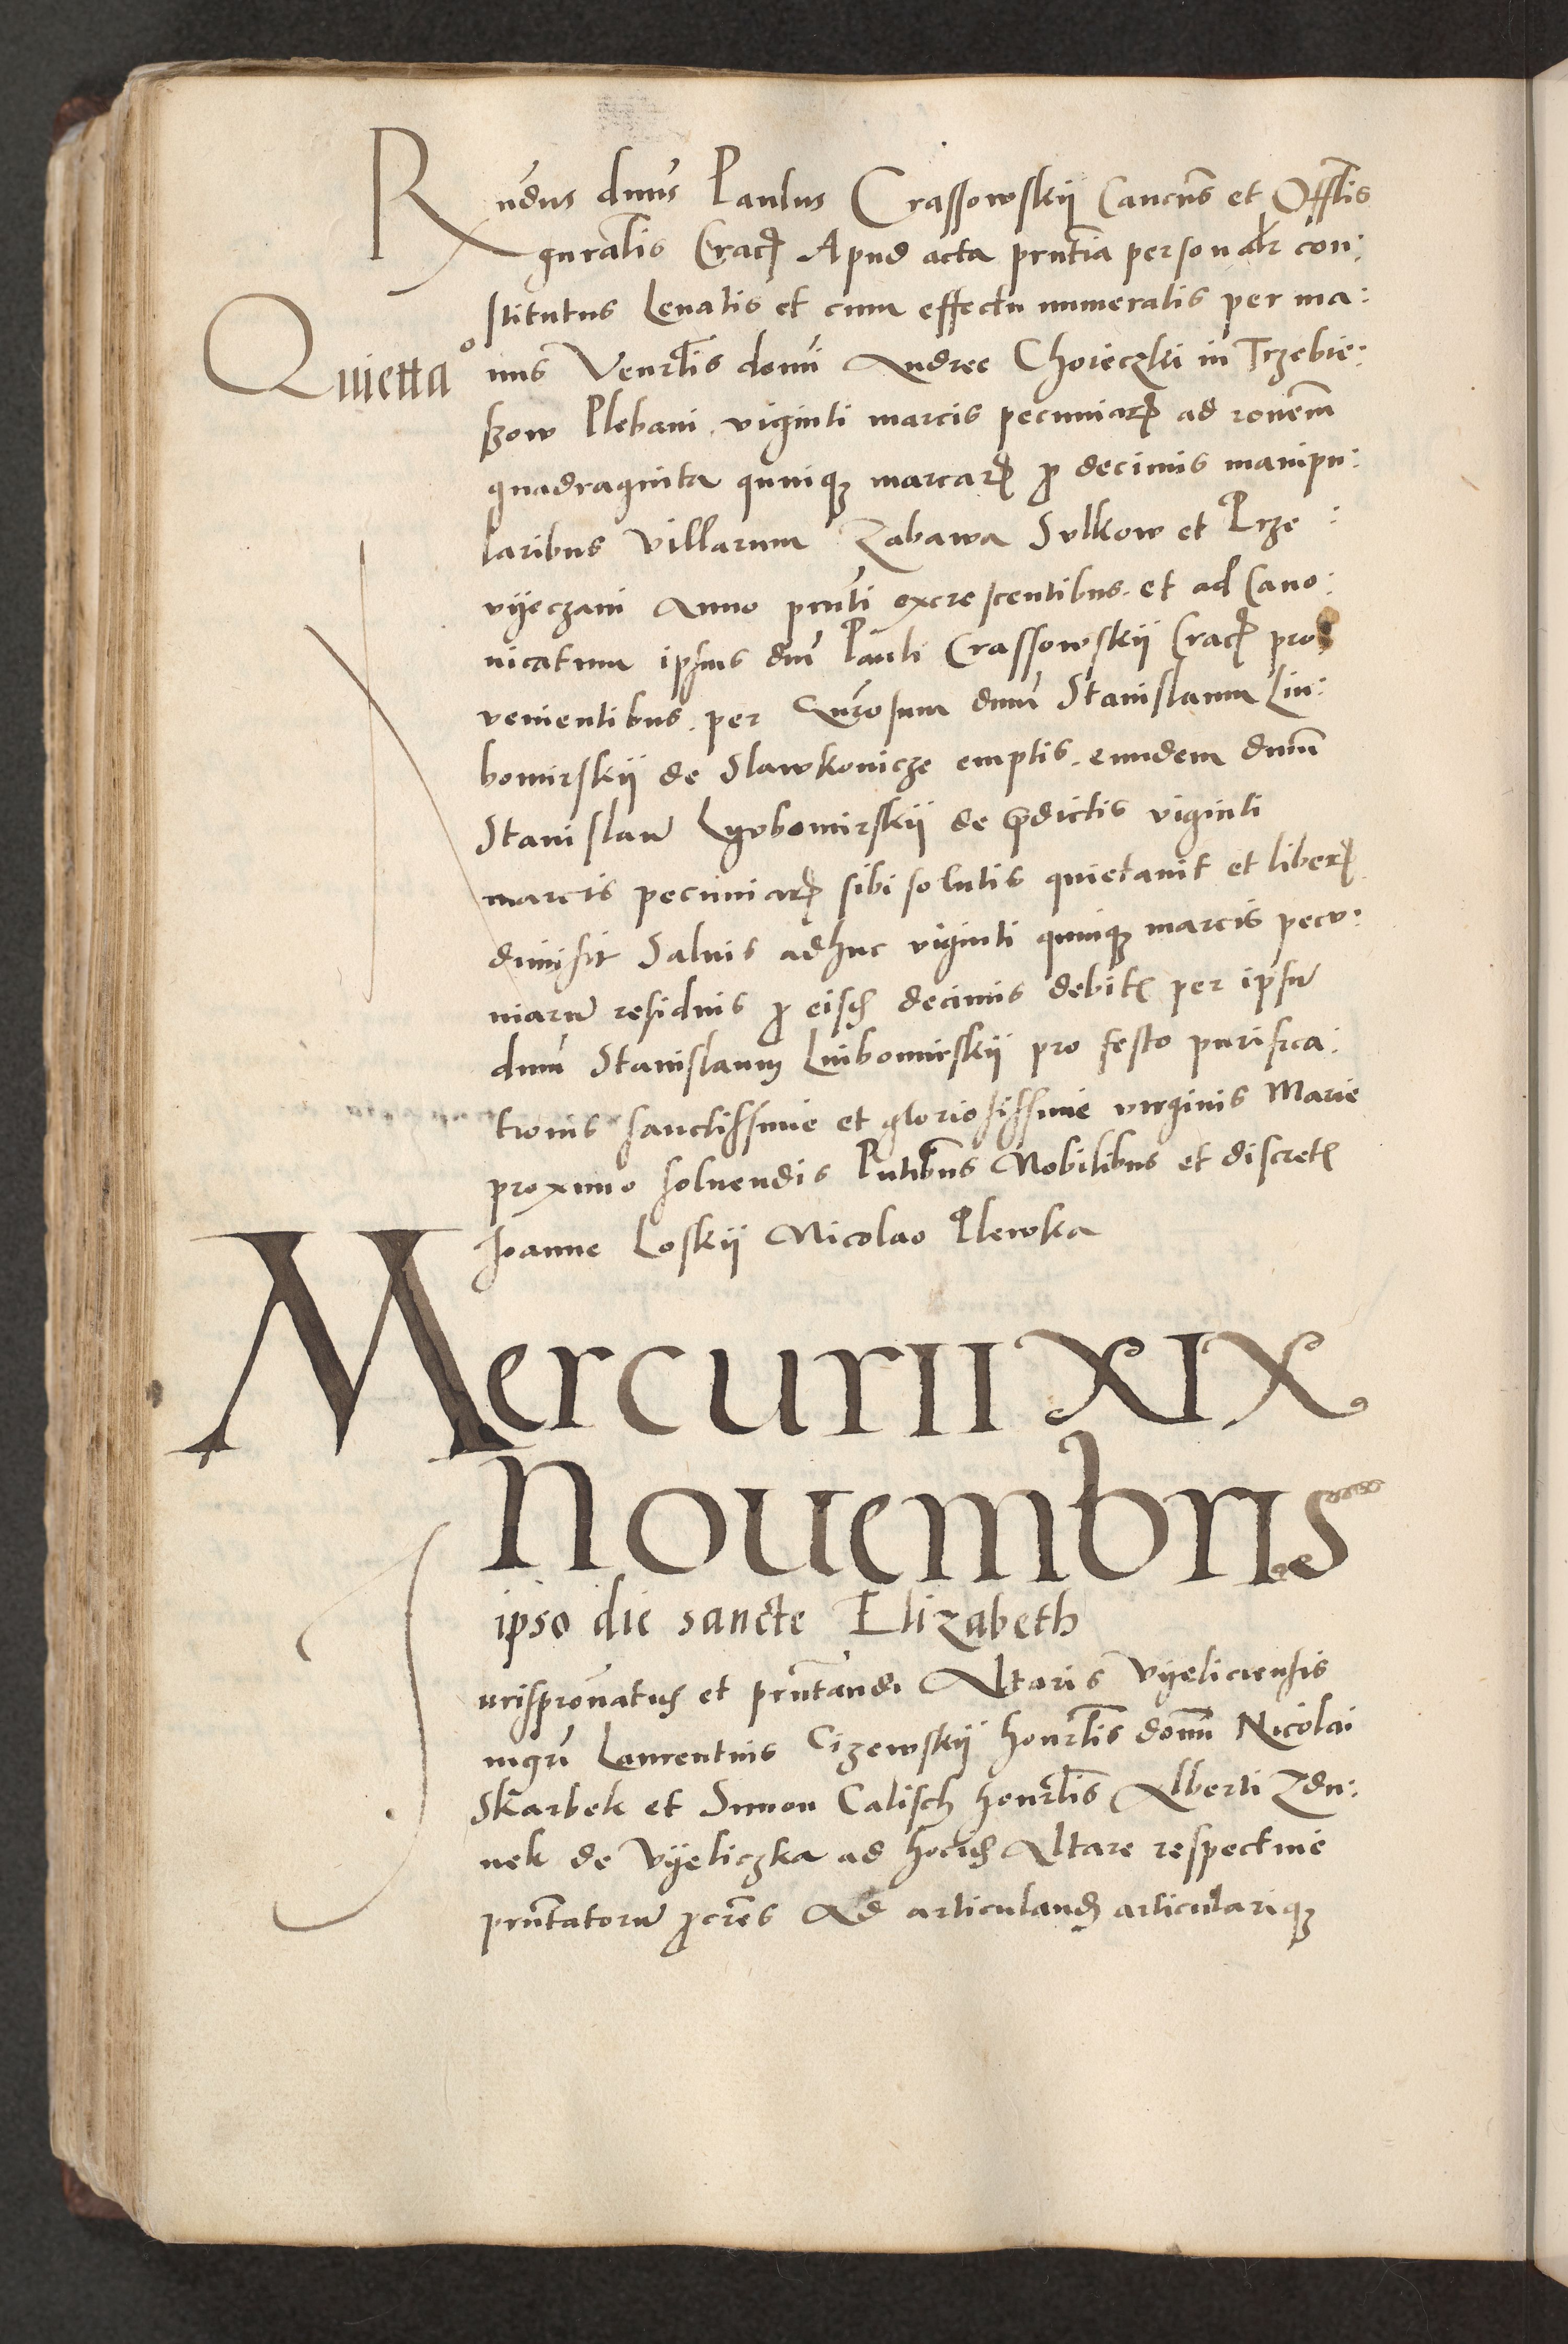 Rndus dnus Paulus Crassowskij Cancus et Offlis
gnralis Crac Apud acta pntia personalr con:
stitutus Levatis et cum effectu numeratis per ma:
Quietta°
nus Venrlis domi Andree Choieczki in Trzebie:
szow Plebani viginti marcis pecuniar ad ronem
quadraginta quinq marcar p decimis manipu:
laribus villarum Zabawa Sulkow et Prze:
vyeczani Anno pnti excrescentibus. et ad Cano:
nicatum ipsius dni Pauli Crassowskij Crac pro
venientibus. per Gnrosum dnum Stanislaum Liu:
bomirskij de Slawkovicze emptis. eundem dnum
Stanislau Lyvbomirskij de pdictis viginti
marcis pecuniar sibi solutis quietavit et liber
dimisit Salvis adhuc viginti quinq marcis pecu:
niaru residuis p eisd decimis debit per ipsu
dnum Stanislaum Luibomirskij pro festo purifica:
tionis sanctissime et gloriosissime virginis Marie
proximo solvendis Pntibus Nobilibus et discret
Joanne Loskij Nicolao Plewka
Mercurii XIX
Novembris
ipso die sancte Elizabeth
Jurispronatus et pntandi Altaris Vyeliciensis
mgri Laurentius Cizewskij honrlis domi Nicolai
Skarbek et Simon Calisch honrlis Alberti Zdu:
nek de Vyeliczka ad hoc Altare respective
pntatoru pcres Ad articuland articularique